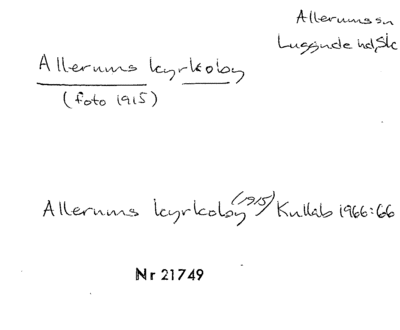 Allerums sn
Luggude hd, Sk
Allerums kyrkoby
(foto 1915)
Allerums kyrkoby (1915) Kullab 1966:66
Nr 21749